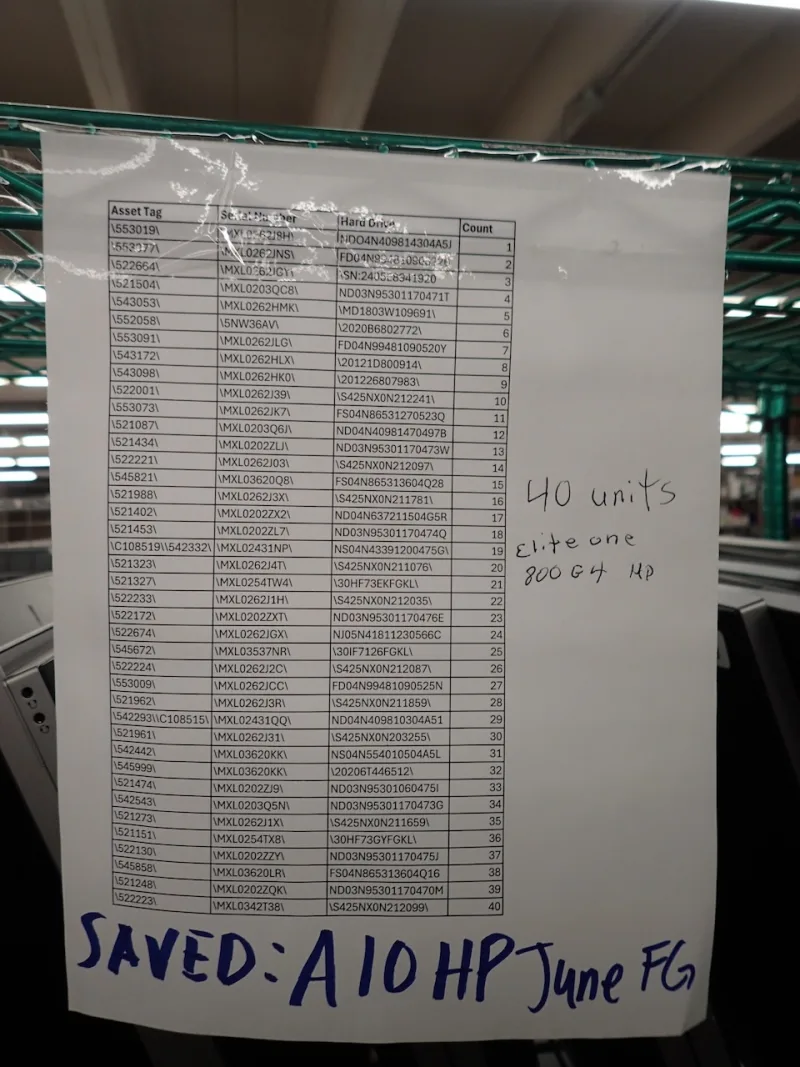 Asset Tag Serial Number Hard Drive Count
\553019\ \MXL0262J9H\ NDO4N409814304A5J 1
\553077\ \MXL0262JNS\ 2
\522664\ \MXL0262JGY\ \SN:2405E8341920 3
\521504\ \MXL0203QC8\ ND03N95301170471T 4
\543053\ \MXL0262HMK\ \MD1803W109691\ 5
\552058\ \5NW36AV\ \2020B6802772\ 6
\553091\ \MXL0262JLG\ FD04N99481090520Y 7
\543172\ \MXL0262HLX\ \20121D800914\ 8
\543098\ \MXL0262HK0\ \201226807983\ 9
\522001\ \MXL0262J39\ \S425NX0N212241\ 10
\553073\ \MXL0262JK7\ FS04N86531270523Q 11
\521087\ \MXL0203Q6J\ ND04N40981470497B 12
\521434\ \MXL0202ZLJ\ ND03N95301170473W 13
\522221\ \MXL0262J03\ \S425NX0N212097\ 14
\545821\ \MXL03620Q8\ FS04N865313604Q28 15
\521988\ \MXL0262J3X\ \S425NX0N211781\ 16
\521402\ \MXL0202ZX2\ ND04N637211504G5R 17
\521453\ \MXL0202ZL7\ ND03N95301170474Q 18
\C108519\\542332\ \MXL02431NP\ NS04N43391200475G\ 19
\521323\ \MXL0262J4T\ \S425NX0N211076\ 20
\521327\ \MXL0254TW4\ \30HF73EKFGKL\ 21
\522233\ \MXL0262J1H\ \S425NX0N212035\ 22
\522172\ \MXL0202ZXT\ ND03N95301170476E 23
\522674\ \MXL0262JGX\ NJ05N41811230566C 24
\545672\ \MXL03537NR\ \30IF7126FGKL\ 25
\522224\ \MXL0262J2C\ \S425NX0N212087\ 26
\553009\ \MXL0262JCC\ FD04N99481090525N 27
\521962\ \MXL0262J3R\ \S425NX0N211859\ 28
\542293\\C108515\ \MXL02431QQ\ ND04N409810304A51 29
\521961\ \MXL0262J31\ \S425NX0N203255\ 30
\542442\ \MXL03620KK\ NS04N554010504A5L 31
\545999\ \MXL03620KK\ \20206T446512\ 32
\521474\ \MXL0202ZJ9\ ND03N95301060475I 33
\542543\ \MXL0203Q5N\ ND03N95301170473G 34
\521273\ \MXL0262J1X\ \S425NX0N211659\ 35
\521151\ \MXL0254TX8\ \30HF73GYFGKL\ 36
\522130\ \MXL0202ZZY\ ND03N95301170475J 37
\545858\ \MXL03620LR\ FS04N865313604Q16 38
\521248\ \MXL0202ZQK\ ND03N95301170470M 39
\522223\ \MXL0342T38\ \S425NX0N212099\ 40
40 units
Elite one
800 G4 HP
SAVED: A10 HP June FG